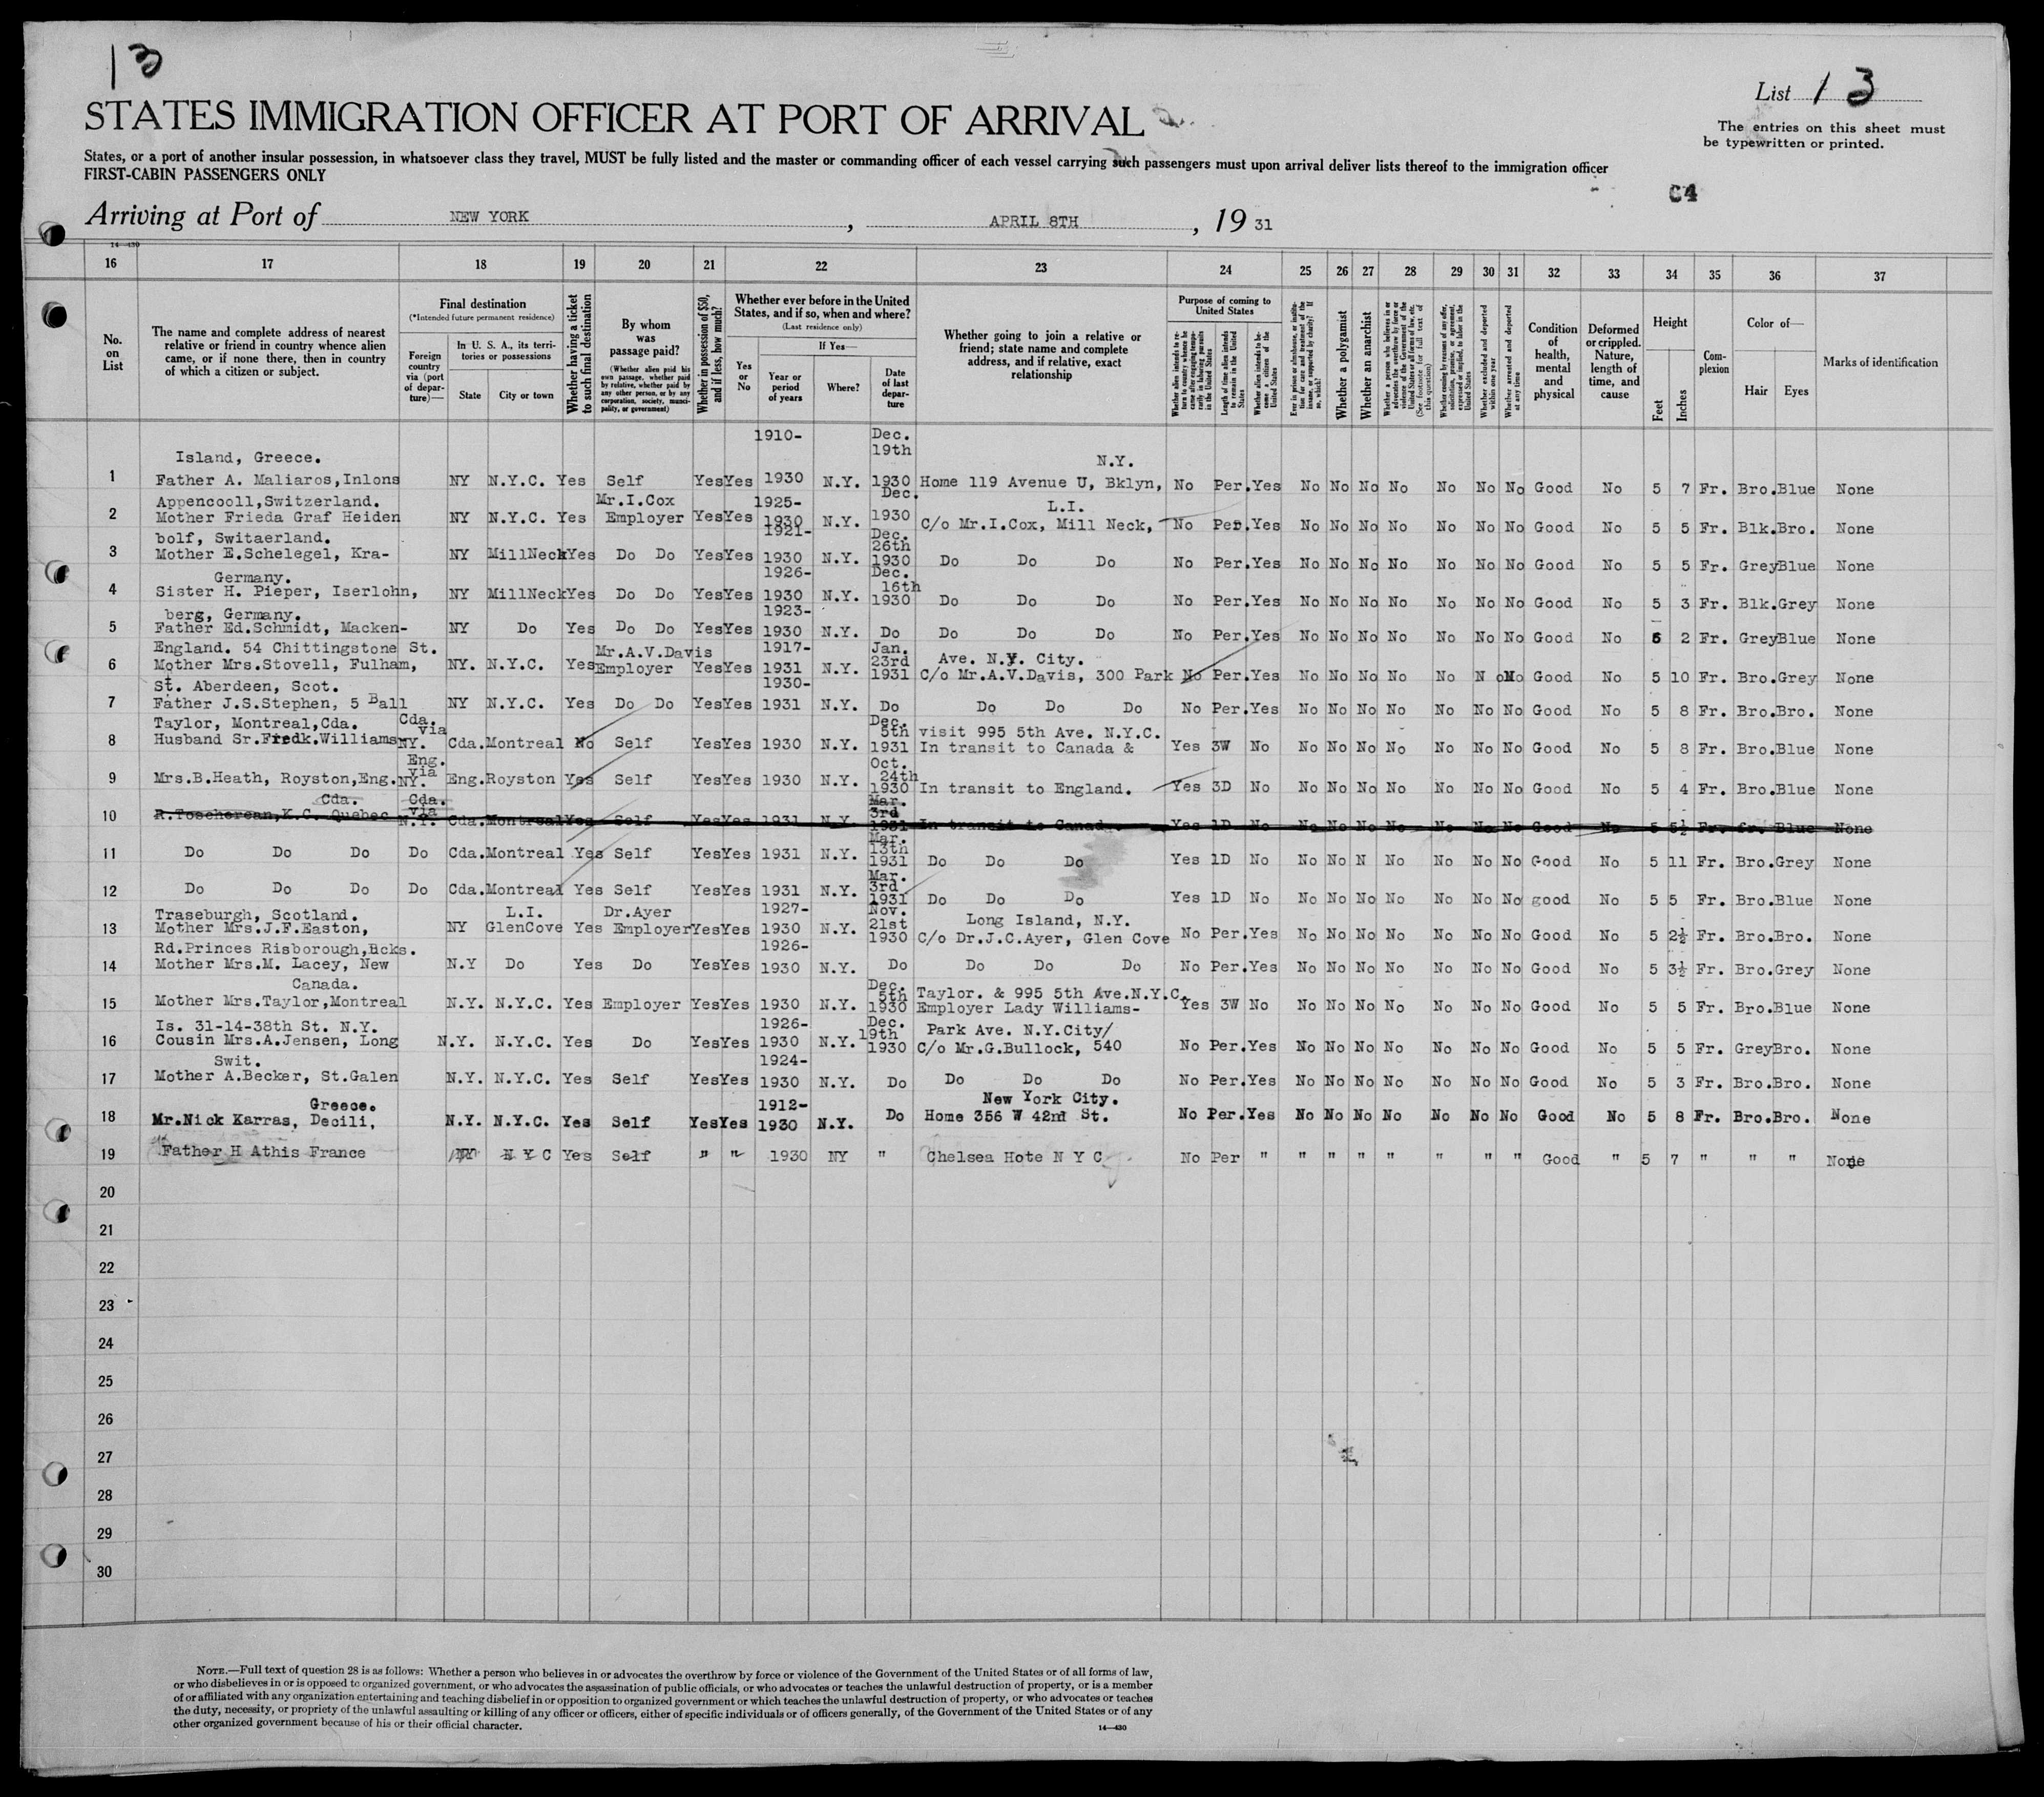 13
List 13
STATES IMMIGRATION OFFICER AT PORT OF ARRIVAL
The entries on this sheet must
be typewritten or printed.
States, or a port of another insular possession, in whatsoever class they travel, MUST be fully listed and the master or commanding officer of each vessel carrying such passengers must upon arrival deliver lists thereof to the immigration officer
FIRST-CABIN PASSENGERS ONLY
C4
Arriving at Port of NEW YORK, APRIL 8TH, 1931
14—430
16 17 18 19 20 21 22 23 24 25 26 27 28 29 30 31 32 33 34 35 36 37
No. on List
The name and complete address of nearest relative or friend in country whence alien came, or if none there, then in country of which a citizen or subject.
Final destination
(*Intended future permanent residence)
Foreign country via (port of departure)—
In U. S. A., its territories or possessions
State City or town
Whether having a ticket to such final destination
By whom was passage paid?
(Whether alien paid his own passage, whether paid by relative, whether paid by any other person, or by any corporation, society, municipality, or government)
Whether in possession of $50, and if less, how much?
Whether ever before in the United States, and if so, when and where?
(Last residence only)
Yes or No
If Yes—
Year or period of years
Where?
Date of last departure
Whether going to join a relative or friend; state name and complete address, and if relative, exact relationship
Purpose of coming to United States
Whether alien intends to return to country whence he came after engaging temporarily in laboring pursuits in the United States
Length of time alien intends to remain in the United States
Whether alien intends to become a citizen of the United States
Ever in prison or almshouse, or institution for care and treatment of the insane, or supported by charity? If so, which?
Whether a polygamist
Whether an anarchist
Whether a person who believes in or advocates the overthrow by force or violence of the Government of the United States or all forms of law, etc. (See footnote for full text of this question)
Whether coming by reason of any offer, solicitation, promise, or agreement, expressed or implied, to labor in the United States
Whether excluded and deported within one year
Whether arrested and deported at any time
Condition of health, mental and physical
Deformed or crippled. Nature, length of time, and cause
Height
Feet Inches
Complexion
Color of—
Hair Eyes
Marks of identification
1910- Dec.
19th
Island, Greece. N.Y.
1 Father A. Maliaros,Inlons NY N.Y.C. Yes Self Yes Yes 1930 N.Y. 1930 Home 119 Avenue U, Bklyn, No Per. Yes No No No No No No No Good No 5 7 Fr. Bro. Blue None
Appencooll,Switzerland. Mr.I.Cox 1925- Dec. L.I.
2 Mother Frieda Graf Heiden NY N.Y.C. Yes Employer Yes Yes 1930 N.Y. 1930 C/o Mr.I.Cox, Mill Neck, No Per. Yes No No No No No No No Good No 5 5 Fr. Blk. Bro. None
bolf, Switaerland. 1921- Dec. 26th
3 Mother E.Schelegel, Kra- NY MillNeck Yes Do Do Yes Yes 1930 N.Y. 1930 Do Do Do No Per. Yes No No No No No No No Good No 5 5 Fr. Grey Blue None
Germany. 1926- Dec. 16th
4 Sister H. Pieper, Iserlohn, NY MillNeck Yes Do Do Yes Yes 1930 N.Y. 1930 Do Do Do No Per. Yes No No No No No No No Good No 5 3 Fr. Blk. Grey None
berg, Germany. 1923-
5 Father Ed.Schmidt, Macken- NY Do Yes Do Do Yes Yes 1930 N.Y. Do Do Do Do No Per. Yes No No No No No No No Good No 5 2 Fr. Grey Blue None
England. 54 Chittingstone St. Mr.A.V.Davis 1917- Jan. 23rd Ave. N.Y. City.
6 Mother Mrs.Stovell, Fulham, NY. N.Y.C. Yes Employer Yes Yes 1931 N.Y. 1931 C/o Mr.A.V.Davis, 300 Park No Per. Yes No No No No No N oNo Good No 5 10 Fr. Bro. Grey None
St. Aberdeen, Scot. 1930-
7 Father J.S.Stephen, 5 Ball NY N.Y.C. Yes Do Do Yes Yes 1931 N.Y. Do Do Do Do No Per. Yes No No No No No No No Good No 5 8 Fr. Bro. Bro. None
Taylor, Montreal,Cda. Cda. via Dec. 5th visit 995 5th Ave. N.Y.C.
8 Husband Sr.Fredk.Williams- NY. Cda. Montreal No Self Yes Yes 1930 N.Y. 1931 In transit to Canada & Yes 3W No No No No No No No No Good No 5 8 Fr. Bro. Blue None
Eng. via Oct. 24th
9 Mrs.B.Heath, Royston,Eng. NY. Eng. Royston Yes Self Yes Yes 1930 N.Y. 1930 In transit to England. Yes 3D No No No No No No No No Good No 5 4 Fr. Bro. Blue None
Cda. Cda. via Mar. 3rd
10 K.C. Quebec N.Y. Cda. Montreal Yes Self Yes Yes 1931 N.Y. 1931 In transit to Canada. Yes 1D No No No No No No No No Good No 5 5½ Fr. Blue None
Mar. 13th
11 Do Do Do Do Cda. Montreal Yes Self Yes Yes 1931 N.Y. 1931 Do Do Do Yes 1D No No No N No No No No Good No 5 11 Fr. Bro. Grey None
Mar. 3rd
12 Do Do Do Do Cda. Montreal Yes Self Yes Yes 1931 N.Y. 1931 Do Do Do Yes 1D No No No No No No No No good No 5 5 Fr. Bro. Blue None
Traseburgh, Scotland. L.I. Dr.Ayer 1927- Nov. 21st Long Island, N.Y.
13 Mother Mrs.J.F.Easton, NY GlenCove Yes Employer Yes Yes 1930 N.Y. 1930 C/o Dr.J.C.Ayer, Glen Cove No Per. Yes No No No No No No No Good No 5 2½ Fr. Bro. Bro. None
Rd.Princes Risborough,Bcks. 1926-
14 Mother Mrs.M. Lacey, New N.Y Do Yes Do Yes Yes 1930 N.Y. Do Do Do Do No Per. Yes No No No No No No No Good No 5 3½ Fr. Bro. Grey None
Canada. Dec. 5th Taylor. & 995 5th Ave.N.Y.C.
15 Mother Mrs.Taylor,Montreal N.Y. N.Y.C. Yes Employer Yes Yes 1930 N.Y. 1930 Employer Lady Williams- Yes 3W No No No No No No No No Good No 5 5 Fr. Bro. Blue None
Is. 31-14-38th St. N.Y. 1926- Dec. 19th Park Ave. N.Y.City/
16 Cousin Mrs.A.Jensen, Long N.Y. N.Y.C. Yes Do Yes Yes 1930 N.Y. 1930 C/o Mr.G.Bullock, 540 No Per. Yes No No No No No No No Good No 5 5 Fr. Grey Bro. None
Swit. 1924-
17 Mother A.Becker, St.Galen N.Y. N.Y.C. Yes Self Yes Yes 1930 N.Y. Do Do Do Do No Per. Yes No No No No No No No Good No 5 3 Fr. Bro. Bro. None
Greece. 1912- New York City.
18 Mr.Nick Karras, Decili, N.Y. N.Y.C. Yes Self Yes Yes 1930 N.Y. Do Home 356 W 42nd St. No Per. Yes No No No No No No No Good No 5 8 Fr. Bro. Bro. None
19 Father H Athis France NY N Y C Yes Self " " 1930 NY " Chelsea Hote N Y C No Per " " " " " " " " Good " 5 7 " " " None
20
21
22
23
24
25
26
27
28
29
30
NOTE.—Full text of question 28 is as follows: Whether a person who believes in or advocates the overthrow by force or violence of the Government of the United States or of all forms of law,
or who disbelieves in or is opposed to organized government, or who advocates the assassination of public officials, or who advocates or teaches the unlawful destruction of property, or is a member
of or affiliated with any organization entertaining and teaching disbelief in or opposition to organized government or which teaches the unlawful destruction of property, or who advocates or teaches
the duty, necessity, or propriety of the unlawful assaulting or killing of any officer or officers, either of specific individuals or of officers generally, of the Government of the United States or of any
other organized government because of his or their official character.
14—430